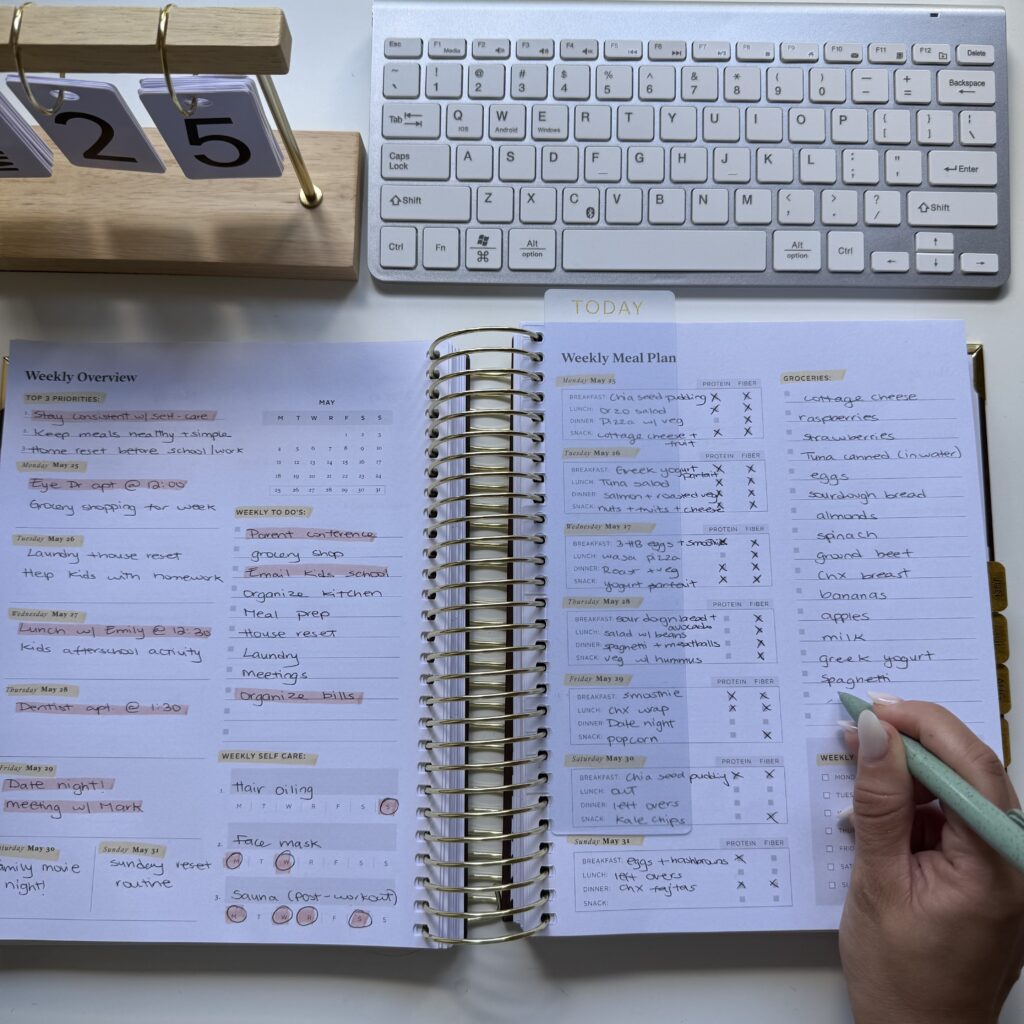 2 5
Esc F1 Media F2 F3 F4 F5 F6 F7 F8 F9 F10 F11 F12 Delete
~ ` ! 1 @ 2 # 3 $ 4 % 5 ^ 6 & 7 * 8 ( 9 ) 0 _ - + = Backspace
Tab Q IOS W Android E Windows R T Y U I O P { [ } ] | \
Caps Lock A S D F G H J K L : ; " ' Enter
Shift Z X C V B N M < , > . ? / Shift
Ctrl Fn Alt option Alt option Ctrl
TODAY
Weekly Overview
TOP 3 PRIORITIES:
1. Stay consistent w/ self-care
2. Keep meals healthy + simple
3. Home reset before school/work
MAY
M T W T F S S
1 2 3
4 5 6 7 8 9 10
11 12 13 14 15 16 17
18 19 20 21 22 23 24
25 26 27 28 29 30 31
Monday May 25
Eye Dr apt @ 12:00
Grocery shopping for week
Tuesday May 26
Laundry + house reset
Help kids with homework
Wednesday May 27
Lunch w/ Emily @ 12:30
Kids afterschool activity
Thursday May 28
Dentist apt. @ 1:30
Friday May 29
Date night!
meeting w/ Mark
Saturday May 30
family movie
night!
Sunday May 31
Sunday reset
routine
WEEKLY TO DO'S:
Parent conference
grocery shop
Email kids school
Organize kitchen
Meal prep
House reset
Laundry
Meetings
Organize bills
WEEKLY SELF CARE:
1. Hair oiling
M T W R F S S
2. Face mask
M T W R F S S
3. Sauna (post-workout)
M T W R F S S
Weekly Meal Plan
Monday May 25 PROTEIN FIBER
BREAKFAST: Chia seed pudding X X
LUNCH: Orzo salad X X
DINNER: Pizza w/ veg X
SNACK: cottage cheese + fruit X X
Tuesday May 26 PROTEIN FIBER
BREAKFAST: Greek yogurt parfait X X
LUNCH: Tuna salad X X
DINNER: Salmon + roasted veg X X
SNACK: nuts + fruits + cheese X X
Wednesday May 27 PROTEIN FIBER
BREAKFAST: 3 HB eggs + smoothie X X
LUNCH: wasa pizza X
DINNER: Roast + veg X X
SNACK: yogurt parfait X X
Thursday May 28 PROTEIN FIBER
BREAKFAST: sourdough bread + avocado X
LUNCH: salad w/ beans X
DINNER: spaghetti + meatballs X
SNACK: veg w/ hummus X
Friday May 29 PROTEIN FIBER
BREAKFAST: smoothie X X
LUNCH: chx wrap X X
DINNER: Date night
SNACK: popcorn X
Saturday May 30 PROTEIN FIBER
BREAKFAST: Chia seed pudding X X
LUNCH: out
DINNER: left overs
SNACK: Kale chips X
Sunday May 31 PROTEIN FIBER
BREAKFAST: eggs + hashbrowns X
LUNCH: left overs
DINNER: chx fajitas X X
SNACK:
GROCERIES:
cottage cheese
raspberries
strawberries
Tuna canned (in water)
eggs
sourdough bread
almonds
spinach
ground beef
chx breast
bananas
apples
milk
greek yogurt
Spaghetti
WEEKLY